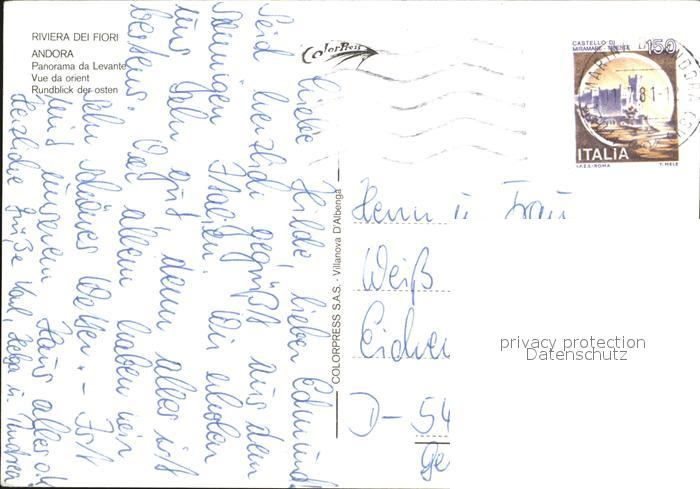 RIVIERA DEI FIORI
ANDORA
Panorama da Levante
Vue da orient
Rundblick der osten
ColorPress
CASTELLO DI
MIRAMARE - TRIESTE L. 150
ITALIA
I.P.Z.S.-ROMA T. MELE
COLORPRESS S.A.S. - Villanova D'Albenga
Liebe Hilde, lieber Edmund!
Seid herzlich gegrüßt aus dem
sonnigen Italien. Wir erholen
uns sehr gut, denn alles ist
bestens. Vor allem haben wir
sehr schönes Wetter. - Ist
mit unserem Haus alles ok
Herzliche Grüße Karl, Helga u. Andrea
Herrn u. Frau
Weiß
D-54
Ge
privacy protection
Datenschutz